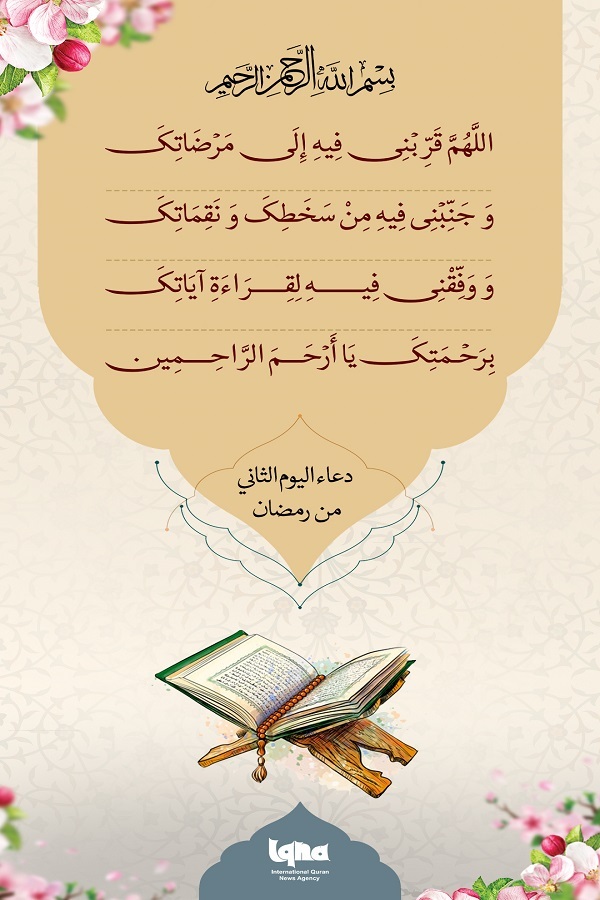 بِسْمِ اللَّهِ الرَّحْمَنِ الرَّحِيمِ
اللَّهُمَّ قَرِّبْنِی فِيهِ إِلَی مَرْضَاتِكَ
وَ جَنِّبْنِی فِيهِ مِنْ سَخَطِكَ وَ نَقِمَاتِكَ
وَ وَفِّقْنِی فِيهِ لِقِرَاءَةِ آيَاتِكَ
بِرَحْمَتِكَ يَا أَرْحَمَ الرَّاحِمِين
دعاء اليوم الثاني
من رمضان
Iqna
International Quran
News Agency